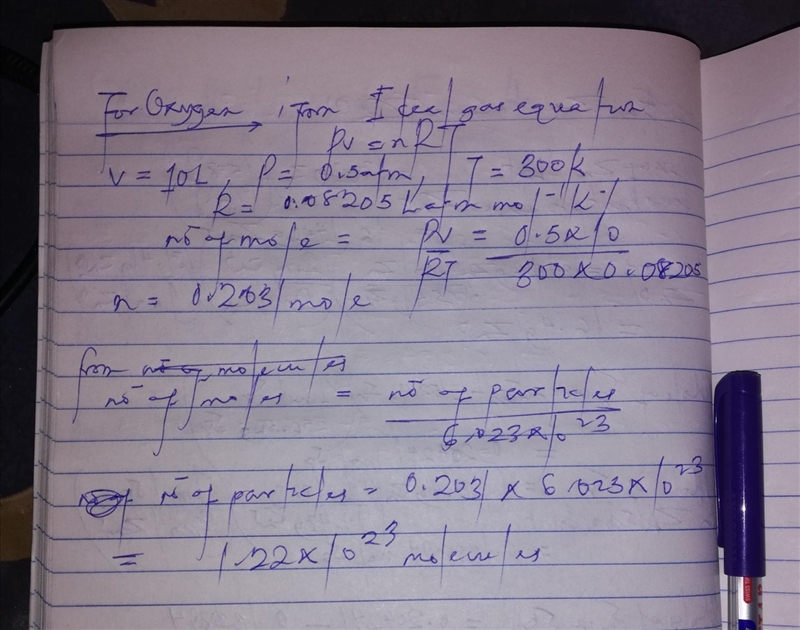 For Oxygen, from Ideal gas equation
PV = nRT
V = 10L, P = 0.5atm, T = 300k
R = 0.08205 Latm mol⁻¹ K⁻¹
no of mole = PV/RT = 0.5 x 10 / 300 x 0.08205
n = 0.2031 mole
from no of molecules
no of moles = no of particles / 6.023 x 10²³
no of particles = 0.2031 x 6.023 x 10²³
= 1.22 x 10²³ molecules